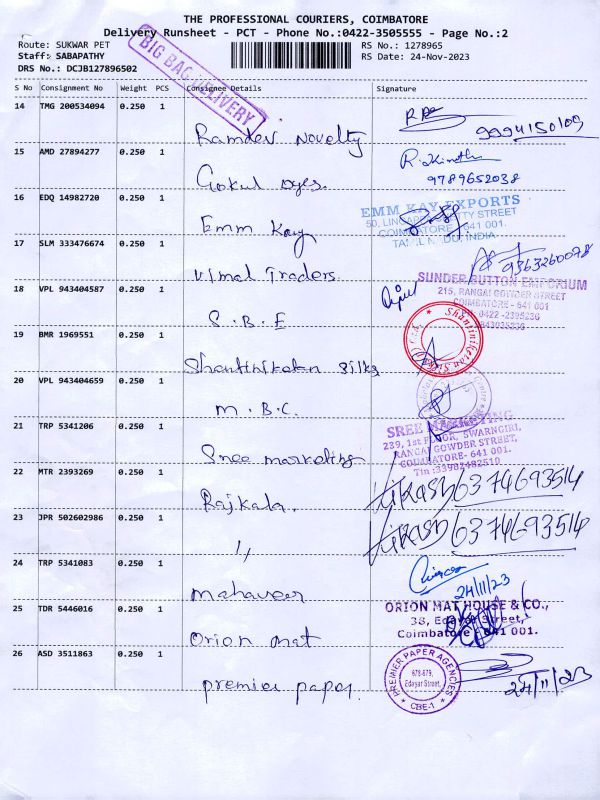 THE PROFESSIONAL COURIERS, COIMBATORE
Delivery Runsheet - PCT - Phone No.:0422-3505555 - Page No.:2
Route: SUKWAR PET
RS No.: 1278965
Staff: SABAPATHY
RS Date: 24-Nov-2023
DRS No.: DCJB127896502
BIG BAG DELIVERY
S No Consignment No Weight PCS Consignee Details Signature
14 TMG 200534094 0.250 1
Ramdev Novelty 9994150109
15 AMD 27894277 0.250 1
Gokul Dyes. 9789652038
16 EDQ 14982720 0.250 1
Emm Kay
EMM KAY EXPORTS
STREET
COIMBATORE 641 001.
TAMIL NADU, INDIA
17 SLM 333476674 0.250 1
Vimal Traders. 9363260078
18 VPL 943404587 0.250 1
S.B.E
SUNDER BUTTON EMPORIUM
215, RANGAI GOWDER STREET
COIMBATORE - 641 001
PH: 0422 -2395236
19 BMR 1969551 0.250 1
Shanthiketan Silks
20 VPL 943404659 0.250 1
M.B.C.
21 TRP 5341206 0.250 1
Sree marketing
SREE MARKETING
239, 1st FLOOR, SWARNGIRI,
RANGAI GOWDER STREET,
COIMBATORE- 641 001.
22 MTR 2393269 0.250 1
Rajkala, VIKASH 6374693514
23 JPR 502602986 0.250 1
,, VIKASH 6374693514
24 TRP 5341083 0.250 1
Mahaveer 24/11/23
25 TDR 5446016 0.250 1
Orion Mat
ORION MAT HOUSE & CO.,
38, Edayar Street,
Coimbatore 641 001.
26 ASD 3511863 0.250 1
premier paper. 24/11/23
PREMIER PAPER AGENCIES
678-679,
Edayar Street,
CBE-1